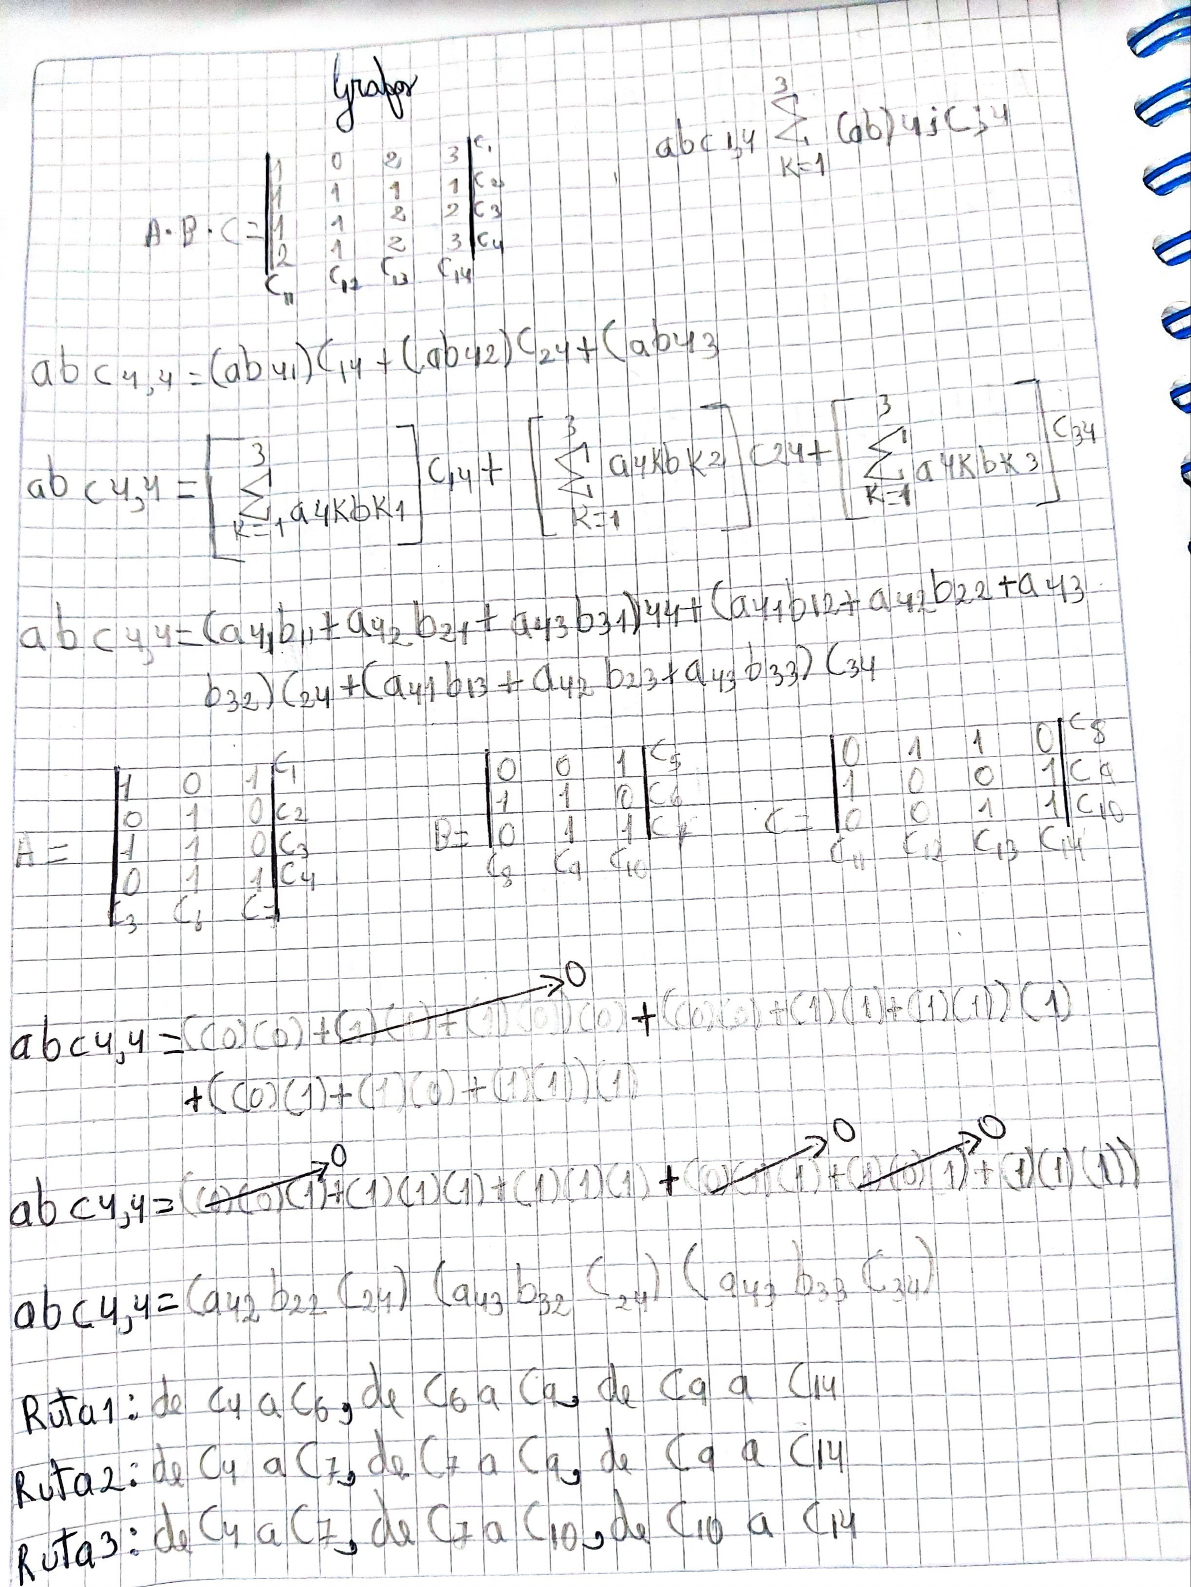 Grafos
abc i,4 3 Σ K=1 (ab)4jCj4
1 0 2 3 C1
1 1 1 1 C2
A·B·C= 1 1 2 2 C3
2 1 2 3 C4
C11 C12 C13 C14
abc4,4=(ab41)C14+(ab42)C24+(ab43
abc4,4=[3 Σ K=1 a4Kbk1]C14+[3 Σ K=1 a4Kbk2]C24+[3 Σ K=1 a4Kbk3]C34
abc4,4=(a41b11+a42b21+a43b31)44+(a41b12+a42b22+a43
b32)C24+(a41b13+a42b23+a43b33)C34
A= 1 0 1 C1
0 1 0 C2
1 1 0 C3
0 1 1 C4
C3 C6 C7
B= 0 0 1 C5
1 1 0 C6
0 1 1 C7
C8 C9 C10
C= 0 1 1 0 C8
1 0 0 1 C9
0 0 1 1 C10
C11 C12 C13 C14
0
abc4,4=((0)(0)+(1)(1)+(1)(0))(0)+((0)(0)+(1)(1)+(1)(1))(1)
+((0)(1)+(1)(0)+(1)(1))(1)
0 0 0
abc4,4=( (0)(1)+(1)(1)(1)+(1)(1)(1)+(0)(1)(1)+(1)(0)(1)+(1)(1)(1))
abc4,4=(a42b22C24)(a43b32C24)(a43b33C34)
Ruta1: de C4 a C6, de C6 a C9, de C9 a C14
Ruta2: de C4 a C7, de C7 a C9, de C9 a C14
Ruta3: de C4 a C7, de C7 a C10, de C10 a C14